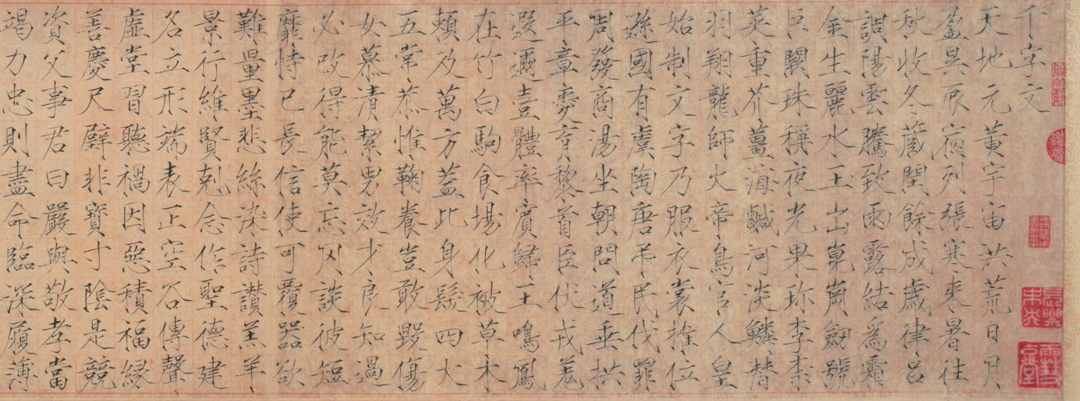 千字文
天地元黃宇宙洪荒日月
盈昃辰宿列張寒來暑往
秋收冬藏閏餘成歲律呂
調陽雲騰致雨露結為霜
金生麗水玉出崑崗劔號
巨闕珠稱夜光果珍李柰
菜重芥薑海鹹河淡鱗潛
羽翔龍師火帝鳥官人皇
始制文字乃服衣裳推位
遜國有虞陶唐弔民伐罪
周發商湯坐朝問道垂拱
平章愛育黎首臣伏戎羌
遐邇壹體率賓歸王鳴鳳
在竹白駒食場化被草木
賴及萬方蓋此身髮四大
五常恭惟鞠養豈敢毀傷
女慕清絜男效才良知過
必改得能莫忘罔談彼短
靡恃己長信使可覆器欲
難量墨悲絲染詩讚羔羊
景行維賢剋念作聖德建
名立形端表正空谷傳聲
虛堂習聽禍因惡積福緣
善慶尺璧非寶寸陰是競
資父事君曰嚴與敬孝當
竭力忠則盡命臨深履薄
長樂未央